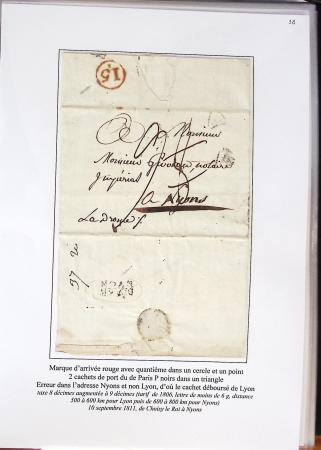 18
15
Monsieur
Monsieur notaire
Impérial
a Nyons
La Drome
Marque d'arrivée rouge avec quantième dans un cercle et un point
2 cachets de port du de Paris P noirs dans un triangle
Erreur dans l'adresse Nyons et non Lyon, d'où le cachet déboursé de Lyon
taxe 8 décimes augmentée à 9 décimes (tarif de 1806, lettre de moins de 6 g, distance
500 à 600 km pour Lyon puis de 600 à 800 km pour Nyons)
10 septembre 1811, de Choisy le Roi à Nyons